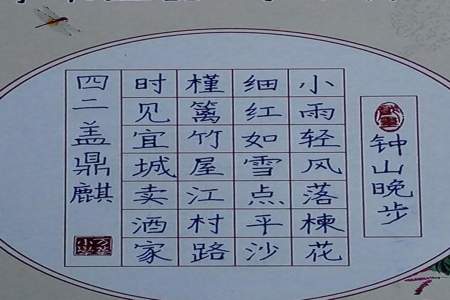 钟山晚步
小雨轻风落楝花
细红如雪点平沙
槿篱竹屋江村路
时见宜城卖酒家
四二盖鼎麒